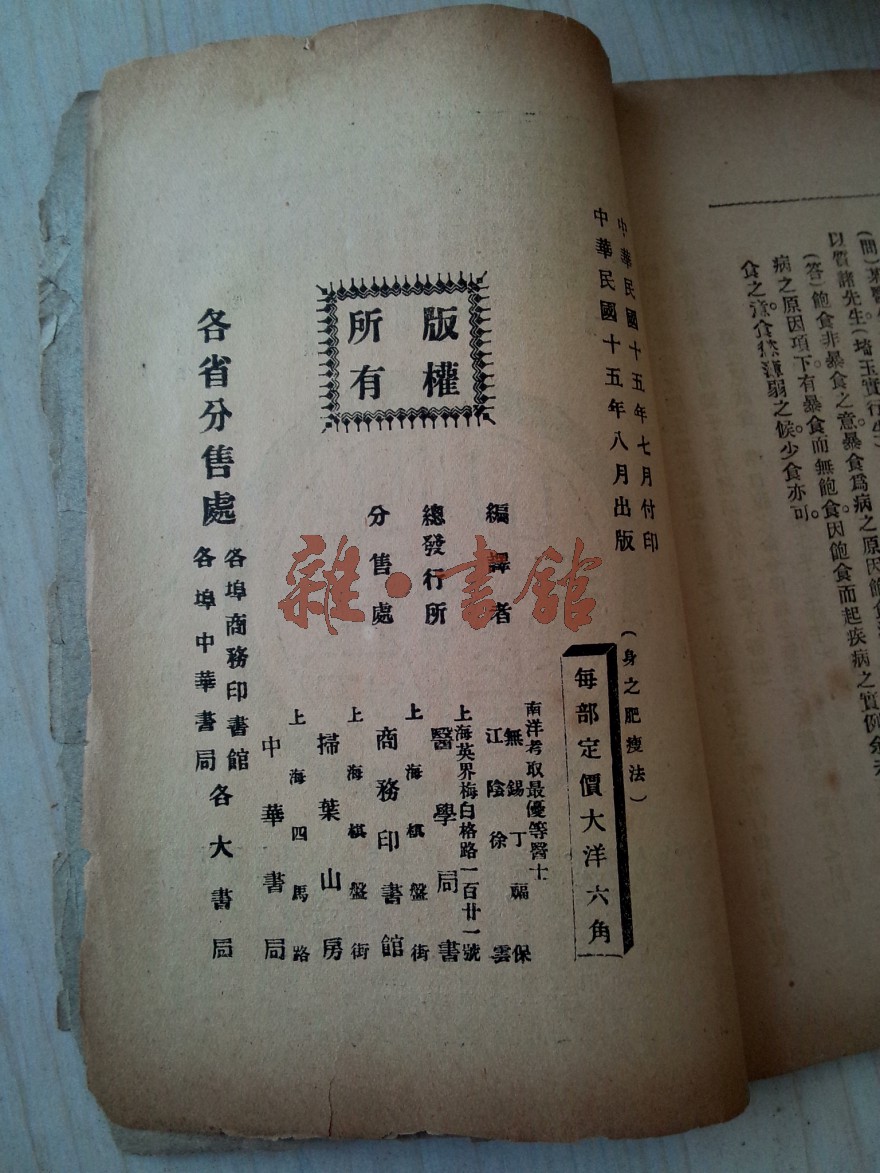 食之。
病之原因項下。有暴食而無飽食。因飽食而起疾病之實例。余未
(答)飽食非暴食之意。暴食爲病之原因。飽食
以質諸先生(埼玉實行
(問)某醫
食之際。食慾薄弱之候。少食亦可。
中華民國十五年七月付印
中華民國十五年八月出版
(身之肥瘦法)
每部定價大洋六角
版權
所有
編譯者
南洋考取最優等醫士
無錫丁福保
江陰徐雲
總發行所
上海英界梅白格路一百廿一號
醫學書局
分售處
上海棋盤街
商務印書館
上海棋盤街
掃葉山房
上海四馬路
中華書局
各省分售處
各埠商務印書館
各埠中華書局
各大書局
雜·書館